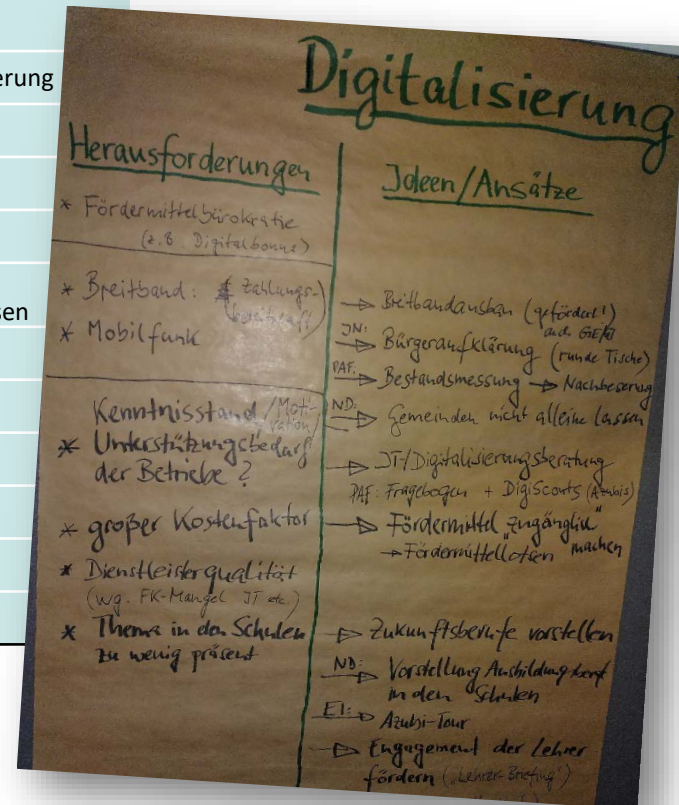 erung
sen
Digitalisierung
Herausforderungen
* Fördermittelbürokratie
(z.B. Digitalbonus)
* Breitband: Zahlungs-
bereitschaft
* Mobilfunk
Kenntnisstand / Moti-
vation
* Unterstützungsbedarf
der Betriebe?
* großer Kostenfaktor
* Dienstleisterqualität
(wg. FK-Mangel IT etc.)
* Thema in den Schulen
zu wenig präsent
Ideen/Ansätze
→ Breitbandausbau (gefördert!)
auch
IN: → Bürgeraufklärung (runde Tische)
PAF: → Bestandsmessung → Nachbesserung
ND: → Gemeinden nicht alleine lassen
→ IT/Digitalisierungsberatung
PAF: Fragebogen + DigiScouts (Azubis)
→ Fördermittel "zugänglich"
machen
→ Fördermittellotsen
→ Zukunftsberufe vorstellen
ND: → Vorstellung Ausbildungsberuf
in den Schulen
EI: → Azubi-Tour
→ Engagement der Lehrer
fördern ("Lehrer-Briefing")